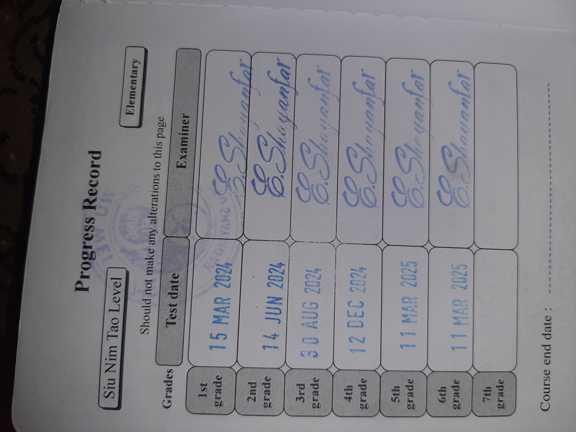 Progress Record
Siu Nim Tao Level
Elementary
Should not make any alterations to this page
Grades Test date Examiner
1st grade 15 MAR 2024 E.Shayanfar
2nd grade 14 JUN 2024 E.Shayanfar
3rd grade 30 AUG 2024 E.Shayanfar
4th grade 12 DEC 2024 E.Shayanfar
5th grade 11 MAR 2025 E.Shayanfar
6th grade 11 MAR 2025 E.Shayanfar
7th grade
Course end date :